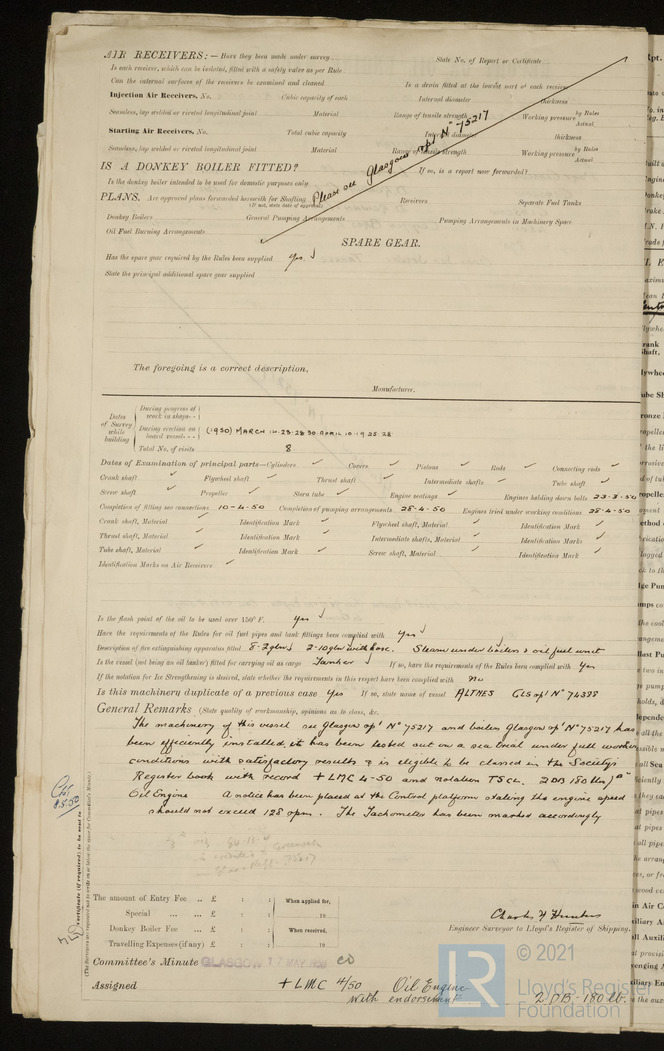 AIR RECEIVERS:— Have they been made under survey State No. of Report or Certificate
Is each receiver, which can be isolated, fitted with a safety valve as per Rule
Can the internal surfaces of the receivers be examined and cleaned Is a drain fitted at the lowest part of each receiver
Injection Air Receivers, No. Cubic capacity of each Internal diameter thickness
Seamless, lap welded or riveted longitudinal joint Material Range of tensile strength Working pressure by Rules Actual
Starting Air Receivers, No. Total cubic capacity Internal diameter thickness
Seamless, lap welded or riveted longitudinal joint Material Range of tensile strength Working pressure by Rules Actual
Please see Glasgow rpt No 75217
IS A DONKEY BOILER FITTED? If so, is a report now forwarded?
Is the donkey boiler intended to be used for domestic purposes only
PLANS. Are approved plans forwarded herewith for Shafting Receivers Separate Fuel Tanks
(If not, state date of approval)
Donkey Boilers General Pumping Arrangements Pumping Arrangements in Machinery Space
Oil Fuel Burning Arrangements
SPARE GEAR.
Has the spare gear required by the Rules been supplied Yes.
State the principal additional spare gear supplied
The foregoing is a correct description,
Manufacturer.
Dates of Survey while building
During progress of work in shops - -
During erection on board vessel - - - (1950) MARCH 14-23-28-30-APRIL 10-19-25-28
Total No. of visits 8
Dates of Examination of principal parts—Cylinders Covers Pistons Rods Connecting rods
Crank shaft Flywheel shaft Thrust shaft Intermediate shafts Tube shaft
Screw shaft Propeller Stern tube Engine seatings Engines holding down bolts 23-3-50
Completion of fitting sea connections 10-4-50 Completion of pumping arrangements 28-4-50 Engines tried under working conditions 28-4-50
Crank shaft, Material Identification Mark Flywheel shaft, Material Identification Mark
Thrust shaft, Material Identification Mark Intermediate shafts, Material Identification Marks
Tube shaft, Material Identification Mark Screw shaft, Material Identification Mark
Identification Marks on Air Receivers
Is the flash point of the oil to be used over 150° F. Yes
Have the requirements of the Rules for oil fuel pipes and tank fittings been complied with Yes
Description of fire extinguishing apparatus fitted 8-2glns 2-10glns with hose. Steam under boilers & oil fuel unit
Is the vessel (not being an oil tanker) fitted for carrying oil as cargo Tanker If so, have the requirements of the Rules been complied with Yes
If the notation for Ice Strengthening is desired, state whether the requirements in this respect have been complied with No
Is this machinery duplicate of a previous case Yes If so, state name of vessel ALTHES GLS rpt No 74398
General Remarks (State quality of workmanship, opinions as to class, &c.
The machinery of this vessel see Glasgow rpt No 75217 and boilers Glasgow rpt No 75217 has
been efficiently installed, it has been tested out on a sea trial under full working
conditions with satisfactory results & is eligible to be classed in the Society's
Register book with record + LMC 4-50 and notation TSCL. 2DB 180 lbs
Oil Engine A notice has been placed at the Control platform stating the engine speed
should not exceed 128 rpm. The Tachometer has been marked accordingly
The amount of Entry Fee .. £ : : When applied for,
Special ... ... £ : : 19
Donkey Boiler Fee ... £ : : When received,
Travelling Expenses (if any) £ : : 19
Charles H Hunter
Engineer Surveyor to Lloyd's Register of Shipping.
Committee's Minute GLASGOW 17 MAY 1950
Assigned + LMC 4/50 Oil Engine
with endorsement 2 DB - 180 lb.
© 2021
LR Lloyd's Register
Foundation